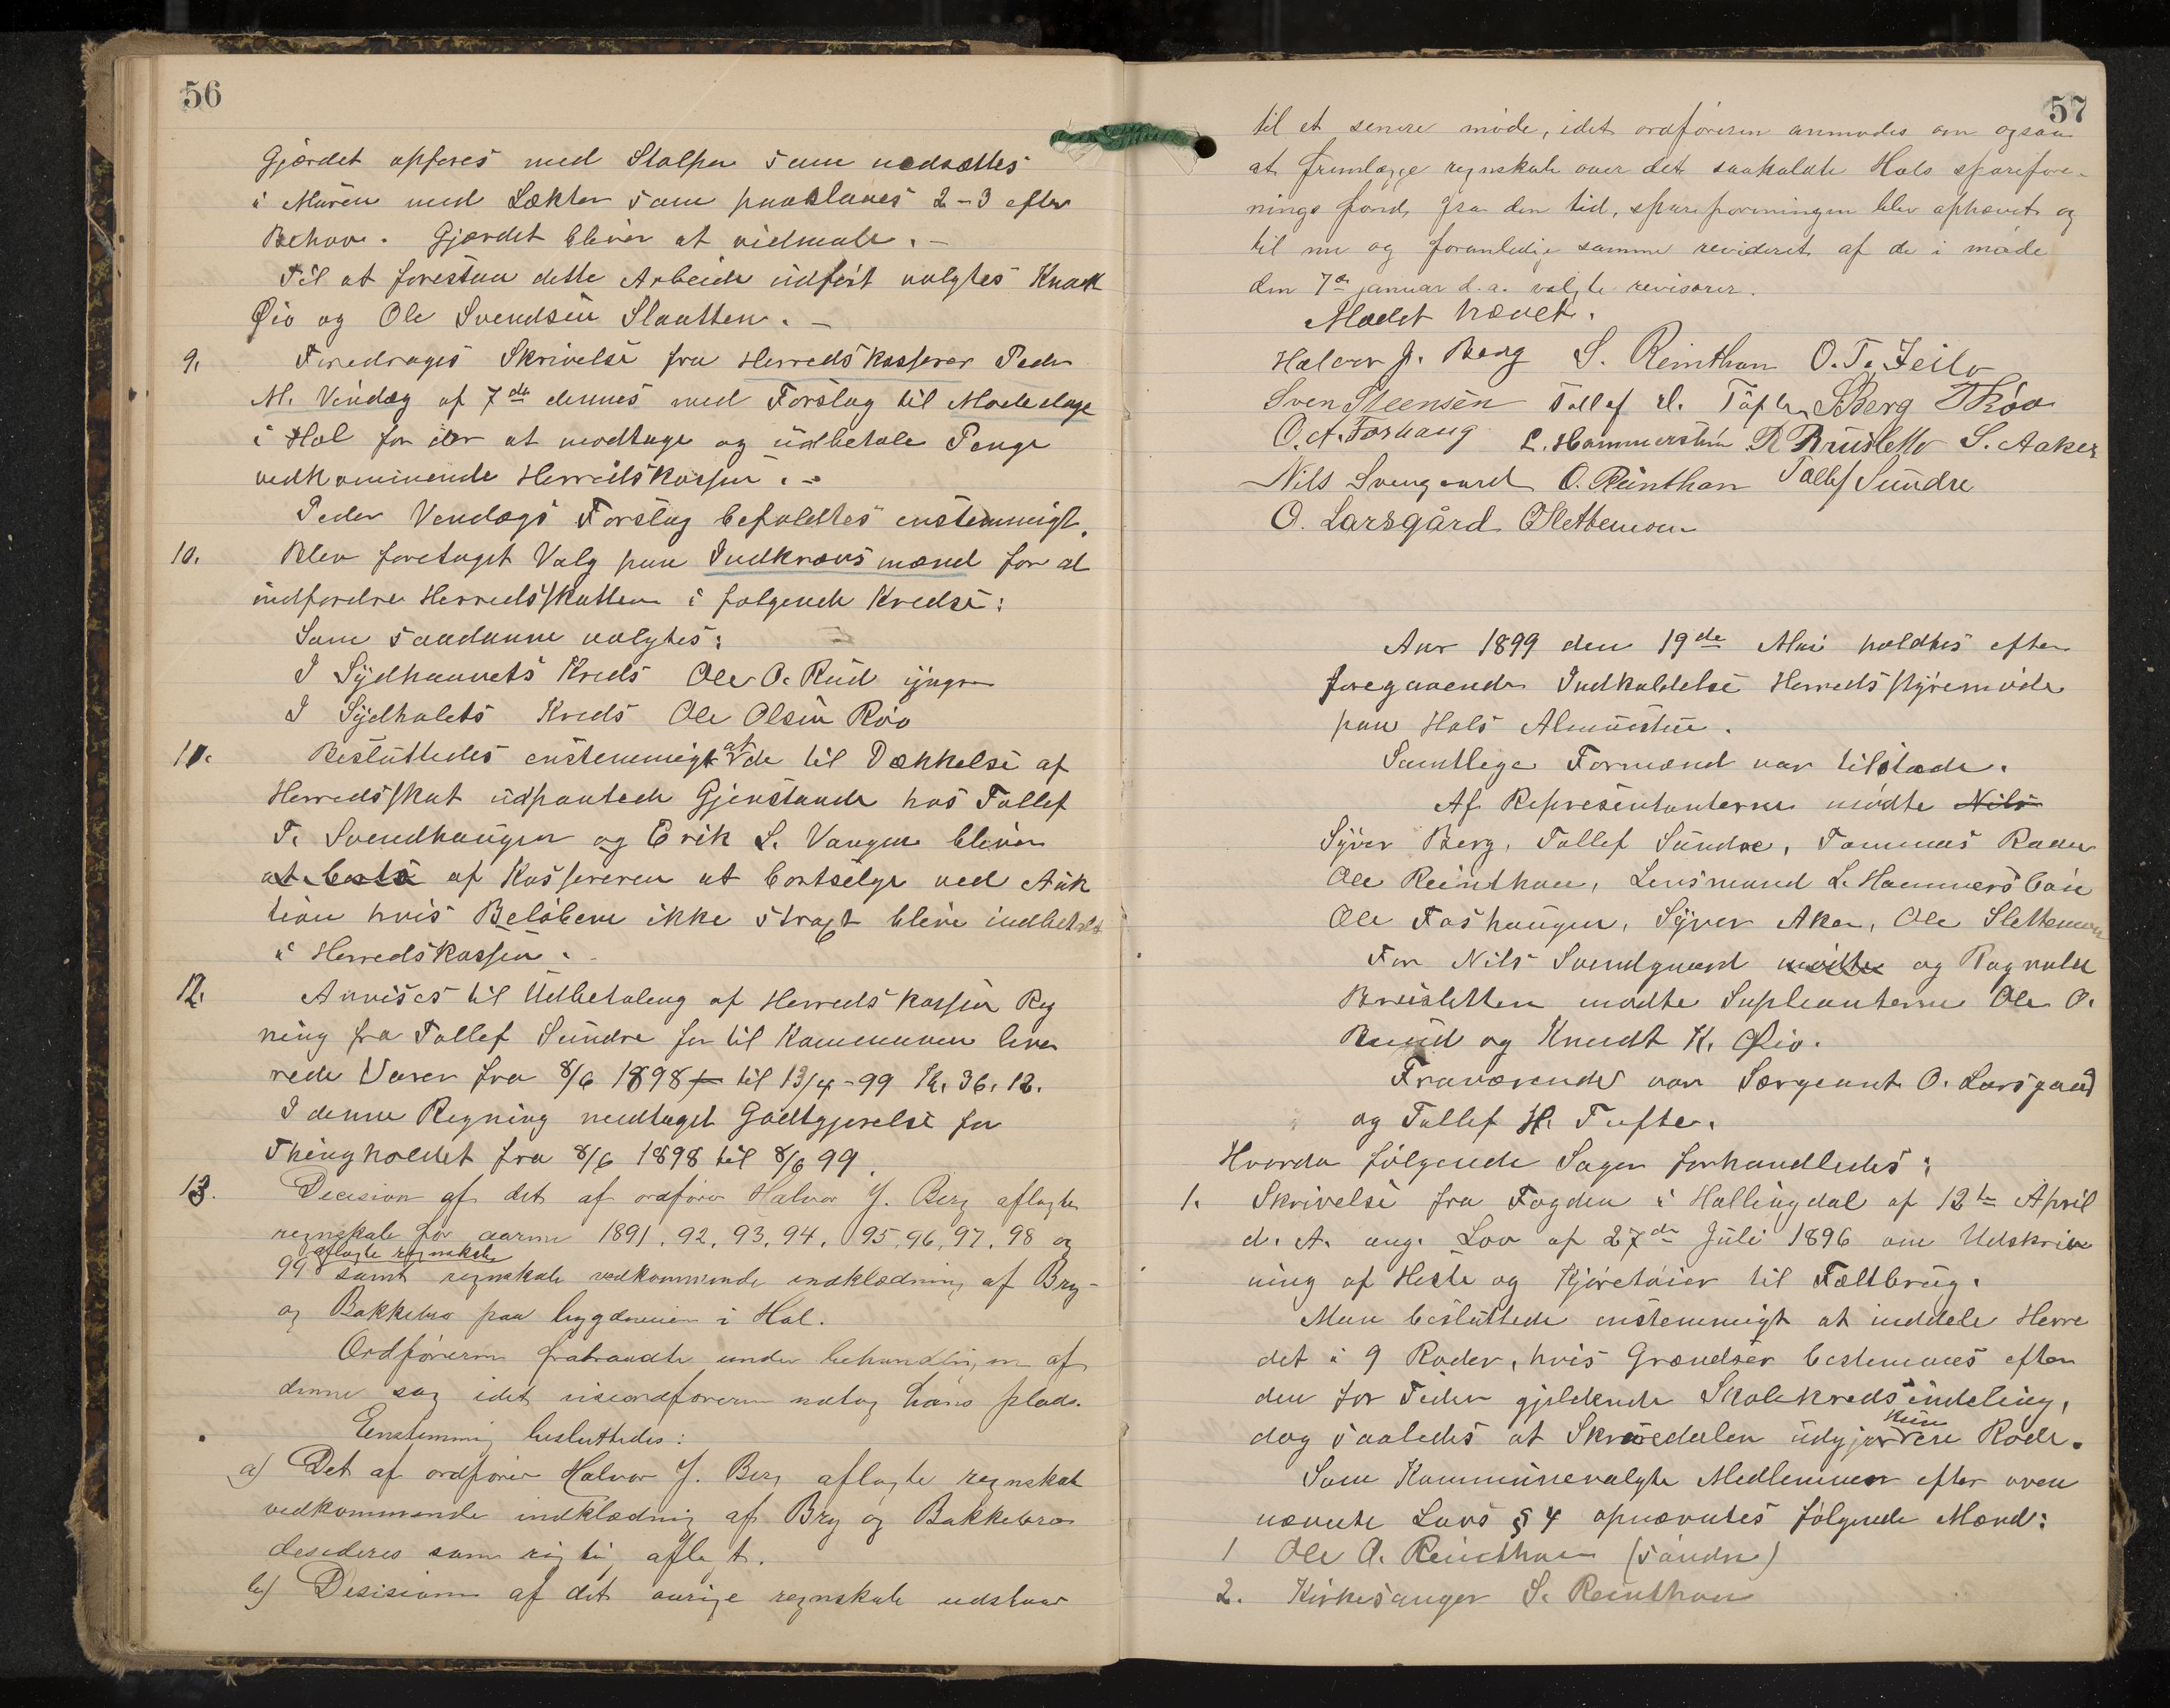 56
Gjærdet opføres med Stolper som nedsættes
i Muren med Lækter som paaslaaes 2-3 efter
Behov. Gjærdet bliver at vidmale. -
Til at forestaa dette Arbeide udført valgtes Knut
Øio og Ole Svendsen Slaatten. -
9. Foredroges Skrivelse fra Herredskasserer Peder
M. Vindæg af 7de dennes med Forslag til Mødedage
i Hol for der at modtage og udbetale Penge
vedkommende Herredskassen. -
Peder Vendægs Forslag befuldtes enstemmigt.
10. Blev foretaget Valg paa Indkrævsmænd for at
indfordre Herredsskatten i følgende Kredse:
Som saadanne valgtes:
I Sydhaavets Kreds Ole O. Rud yngre
I Sydhalets Kreds Ole Olsen Røo
11. Besluttedes enstemmigt at de til Dækkelse af
Herredsskat udpantede Gjenstande hos Tollef
T. Svendhaugen og Erik S. Vangen bliver
at borts af Kassereren at bortselge ved Auk
tion hvis Beløbene ikke straxt blive indbetalt
i Herredskassen. -
12. Anvises til Udbetaling af Herredskassen Reg
ning fra Tollef Sundre for til Kommunen leve
rede Varer fra 8/6 1898 til 13/4-99 Kr. 36.12.
I denne Regning medtaget Godtgjørelse for
Thingholdet fra 8/6 1898 til 8/6 99.
13. Decision af det af ordfører Halvor J. Berg aflagte
regnskab for aarene 1891, 92, 93, 94, 95, 96, 97, 98 og
aflagte regnskab
99 samt regnskab vedkommende indklædning af Bry-
og Bakkebro paa bygdeveien i Hol.
Ordføreren fratraadte under behandlingen af
denne sag idet viseordføreren indtog hans plads.
Enstemmig besluttedes:
a) Det af ordfører Halvor J. Berg aflagte regnskab
vedkommende indklædning af Bry og Bakkebro
desideres som rigtig aflagt.
b) Desisionen af det øvrige regnskab udstaar
57
til et senere møde, idet ordføreren anmodes om ogsaa
at fremlægge regnskab over det saakaldte Hols sparefore-
nings fond, fra den tid, spareforeningen blev ophævet og
til nu og foranledige samme revideret af de i møde
den 7de januar d.a. valgte revisorer.
Mødet hævet.
Halvor J. Berg S. Reinthon O. T. Jeilo
Sven Steensen Tollef H. Tufte SBerg TRøo
O. A. Foshaug L. Hammersbøen R Brusletto S. Aaker
Nils Svengaard O. Reinthon Tollef Sundre
O. Larsgård OSlettemoen
Aar 1899 den 19de Mai holdtes efter
foregaaende Indkaldelse Herredsstyremøde
paa Hols Almuestue.
Samtlige Formænd var tilstæde.
Af Representanterne mødte Nils
Syver Berg, Tollef Sundre, Tommas Røen
Ole Reinthon, Lensmand L. Hammersbøen
Ole Foshaugen, Syver Aker, Ole Slettemoen
For Nils Svendgaard mødte og Ragnvald
Brusletten mødte Supleanterne Ole O.
Ruud og Knudt K. Øio.
Fraværende var Sergeant O. Larsgaard
og Tollef H. Tufte.
Hvorda følgende Sager forhandledes:
1. Skrivelse fra Fogden i Hallingdal af 12te April
d. A. ang. Lov af 27de Juli 1896 om Udskriv
ning af Heste og Kjøretøier til Fæltbrug.
Man besluttede enstemmigt at inddele Herre
det i 9 Roder, hvis Grændser bestemmes efter
den for Tiden gjeldende Skolekredsindeling,
kun
dog saaledes at Skurdalen udgjør een Rode.
Som Kommunevalgte Medlemmer efter oven
nævnte Lovs § 4 opnævntes følgende Mænd:
1 Ole O. Reinthon (søndre)
2. Kirkesanger S. Reinthon